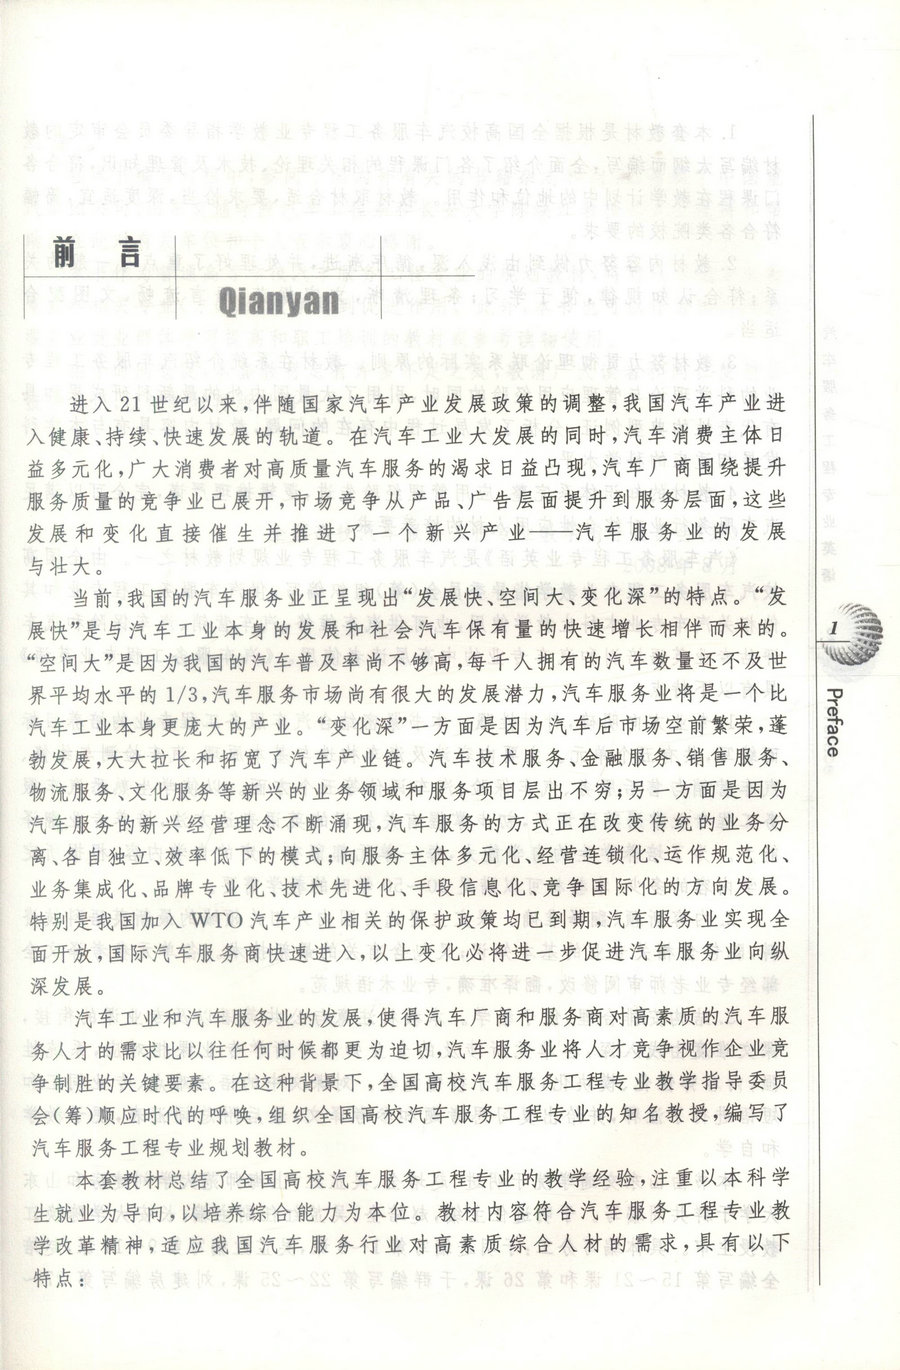 前 言
Qianyan
进入 21 世纪以来,伴随国家汽车产业发展政策的调整,我国汽车产业进
入健康、持续、快速发展的轨道。在汽车工业大发展的同时,汽车消费主体日
益多元化,广大消费者对高质量汽车服务的渴求日益凸现,汽车厂商围绕提升
服务质量的竞争业已展开,市场竞争从产品、广告层面提升到服务层面,这些
发展和变化直接催生并推进了一个新兴产业——汽车服务业的发展
与壮大。
当前,我国的汽车服务业正呈现出“发展快、空间大、变化深”的特点。“发
展快”是与汽车工业本身的发展和社会汽车保有量的快速增长相伴而来的。
“空间大”是因为我国的汽车普及率尚不够高,每千人拥有的汽车数量还不及世
界平均水平的 1/3,汽车服务市场尚有很大的发展潜力,汽车服务业将是一个比
汽车工业本身更庞大的产业。“变化深”一方面是因为汽车后市场空前繁荣,蓬
勃发展,大大拉长和拓宽了汽车产业链。汽车技术服务、金融服务、销售服务、
物流服务、文化服务等新兴的业务领域和服务项目层出不穷;另一方面是因为
汽车服务的新兴经营理念不断涌现,汽车服务的方式正在改变传统的业务分
离、各自独立、效率低下的模式;向服务主体多元化、经营连锁化、运作规范化、
业务集成化、品牌专业化、技术先进化、手段信息化、竞争国际化的方向发展。
特别是我国加入 WTO 汽车产业相关的保护政策均已到期,汽车服务业实现全
面开放,国际汽车服务商快速进入,以上变化必将进一步促进汽车服务业向纵
深发展。
汽车工业和汽车服务业的发展,使得汽车厂商和服务商对高素质的汽车服
务人才的需求比以往任何时候都更为迫切,汽车服务业将人才竞争视作企业竞
争制胜的关键要素。在这种背景下,全国高校汽车服务工程专业教学指导委员
会(筹)顺应时代的呼唤,组织全国高校汽车服务工程专业的知名教授,编写了
汽车服务工程专业规划教材。
本套教材总结了全国高校汽车服务工程专业的教学经验,注重以本科学
生就业为导向,以培养综合能力为本位。教材内容符合汽车服务工程专业教
学改革精神,适应我国汽车服务行业对高素质综合人材的需求,具有以下
特点:
1
Preface